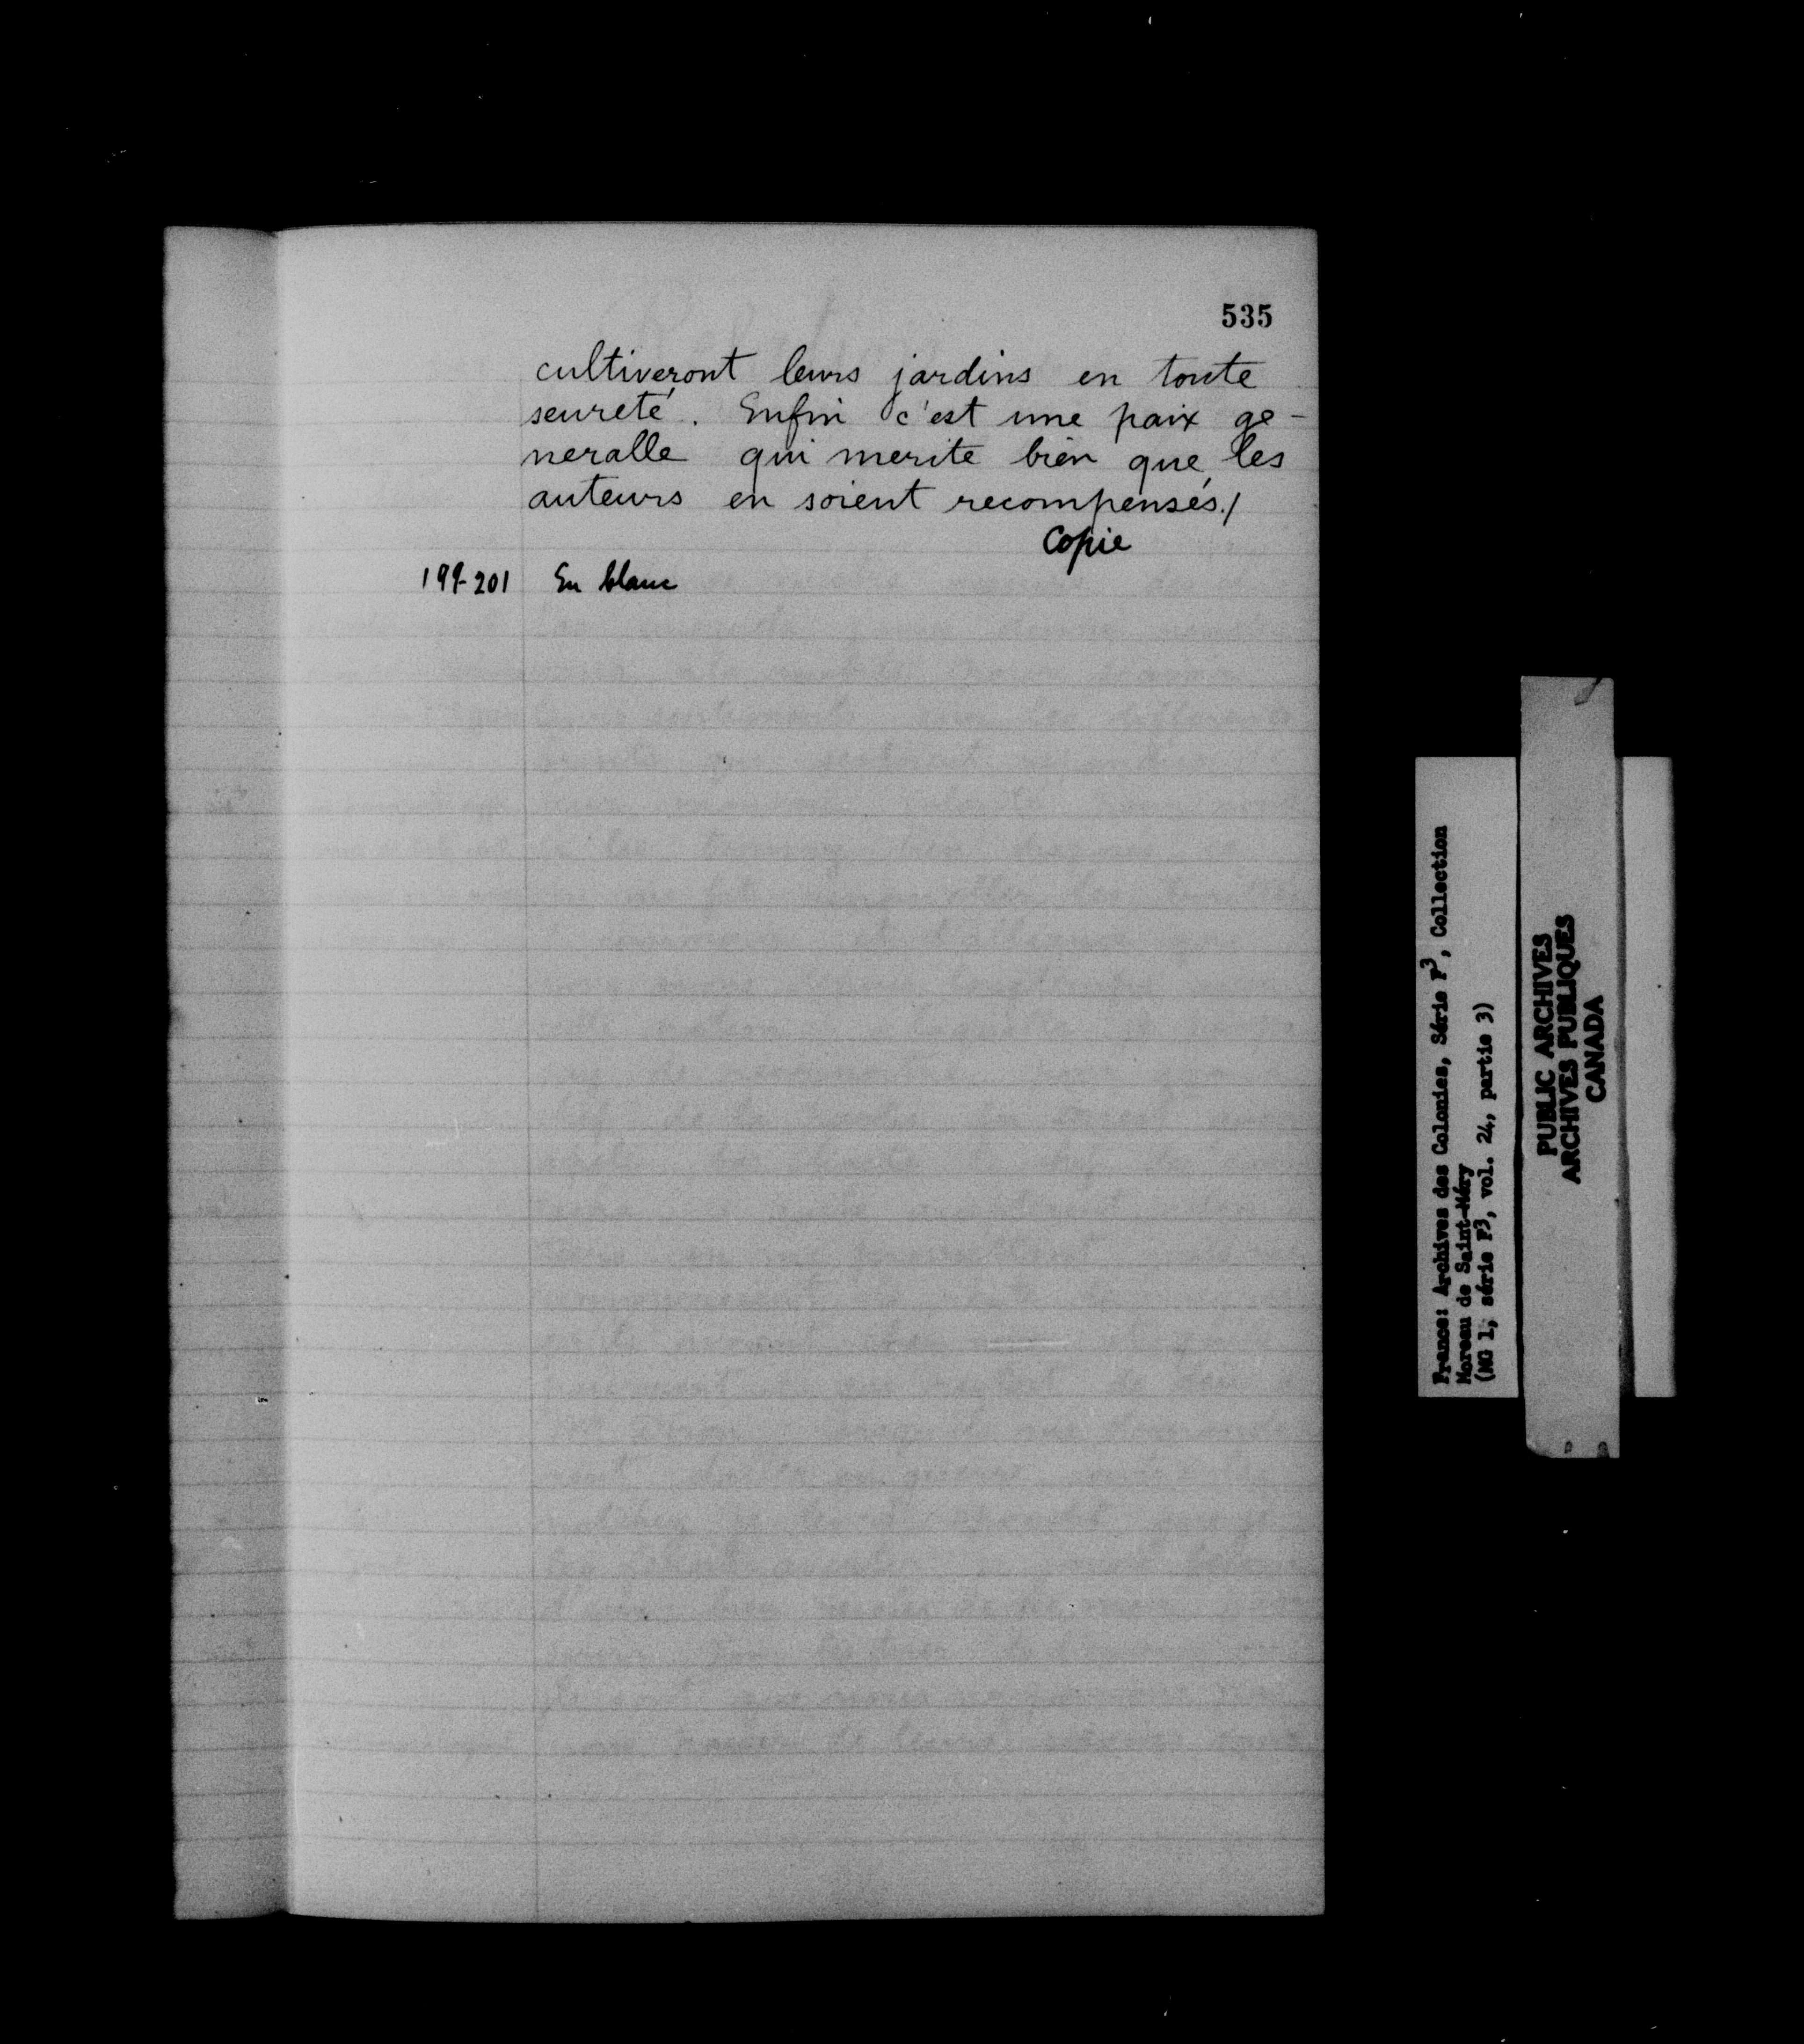 535
cultiveront leurs jardins en toute
seureté. Enfin c'est une paix ge-
neralle qui merite bien que les
auteurs en soient recompensés./
Copie
199-201 En blanc
France: Archives des Colonies, Série F3, Collection
Moreau de Saint-Méry
(MG 1, série F3, vol. 24, partie 3)
PUBLIC ARCHIVES
ARCHIVES PUBLIQUES
CANADA